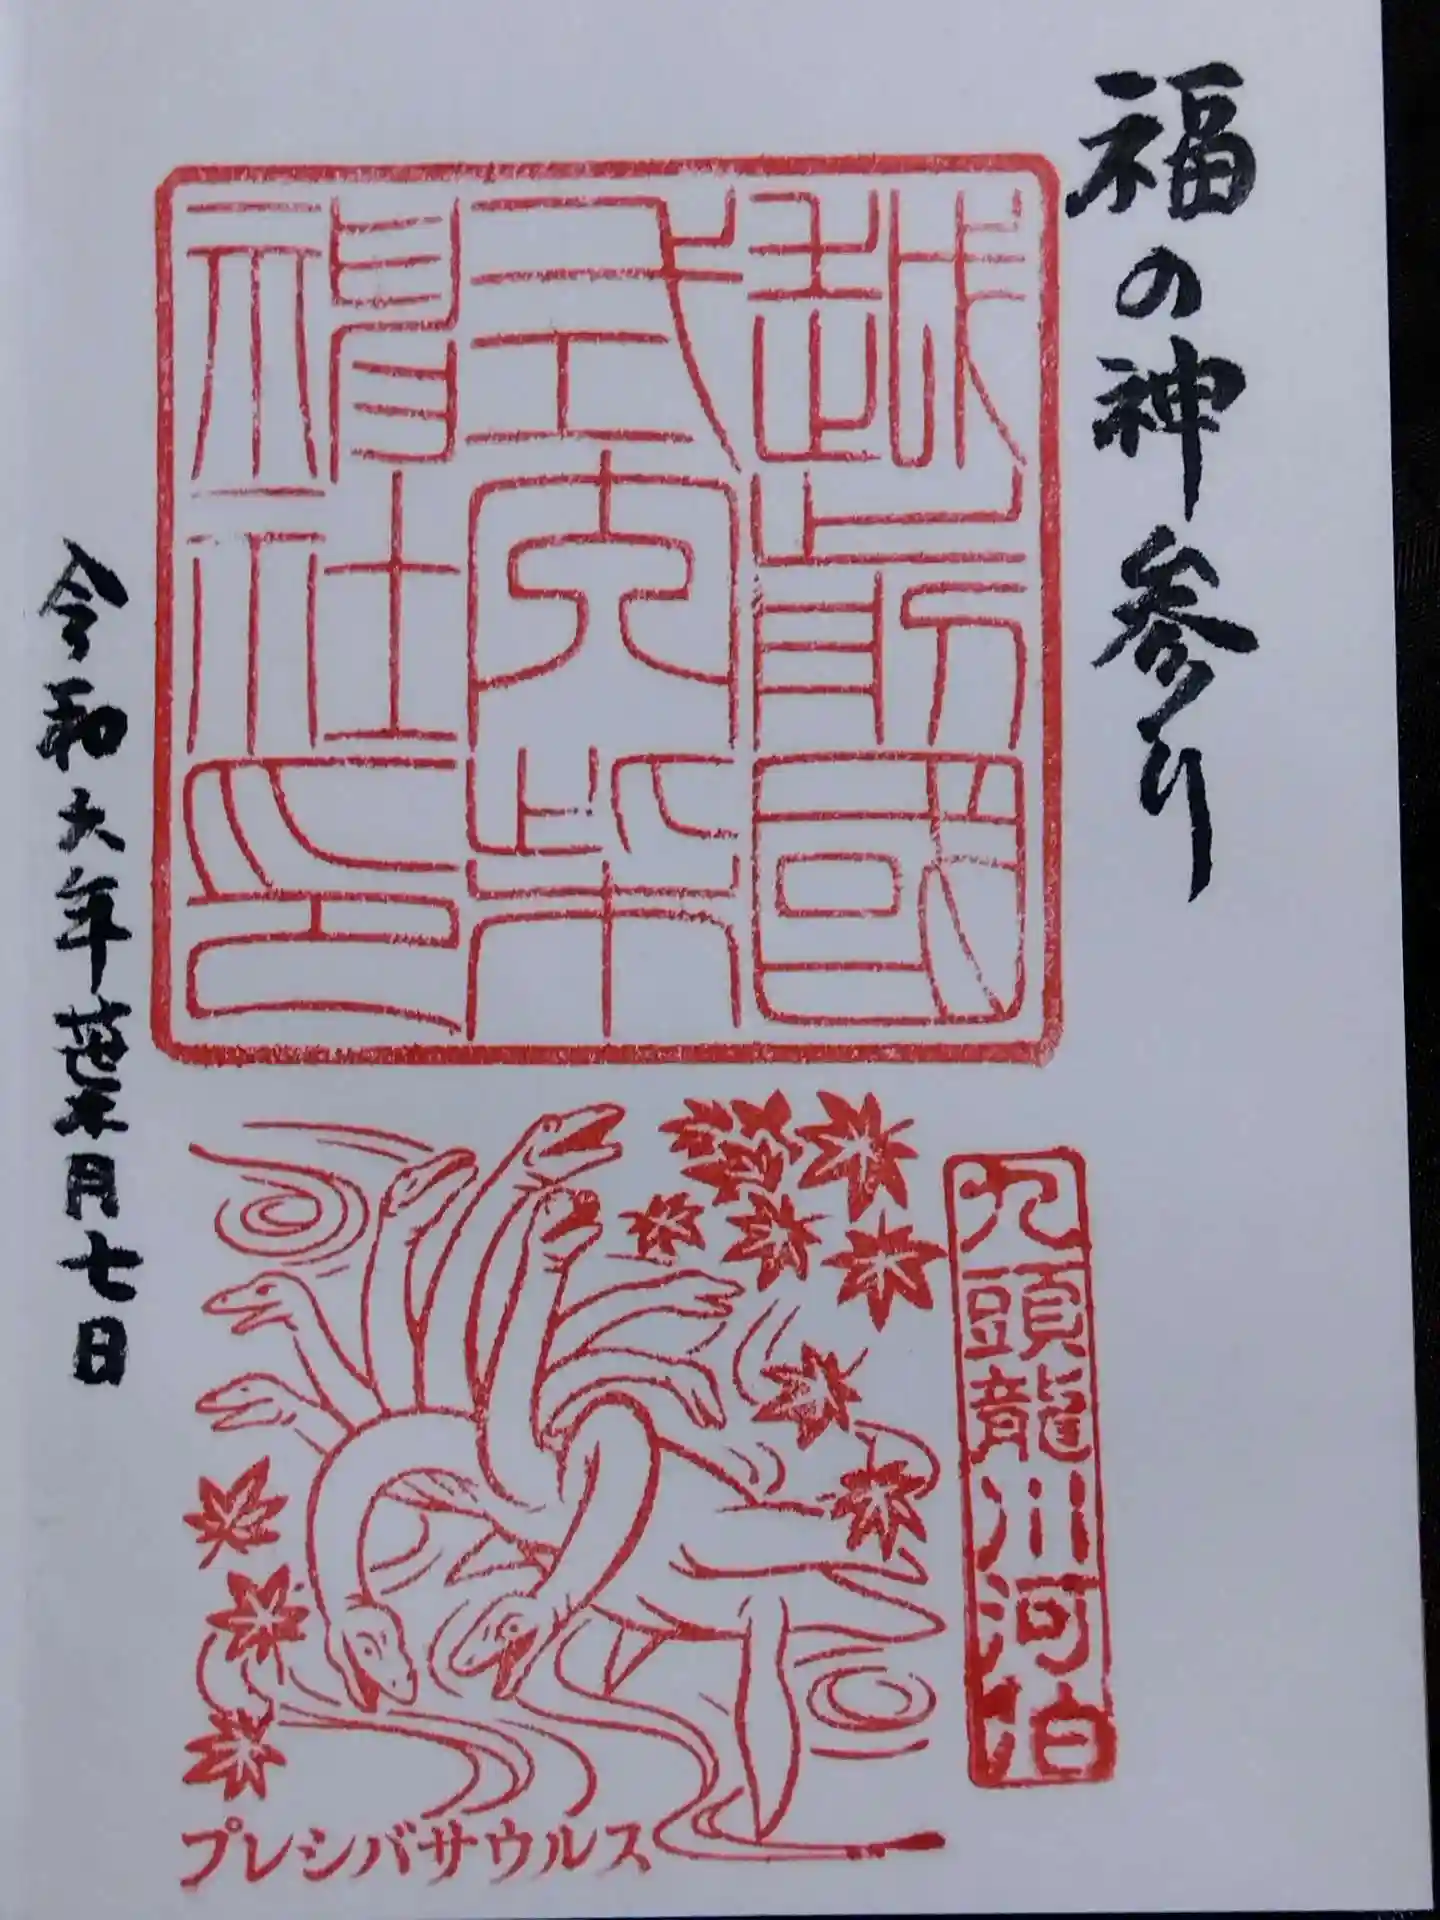 福の神参り
越前國
式内柴
神社印
令和六年葉月七日
九頭龍川河泊
プレシバサウルス